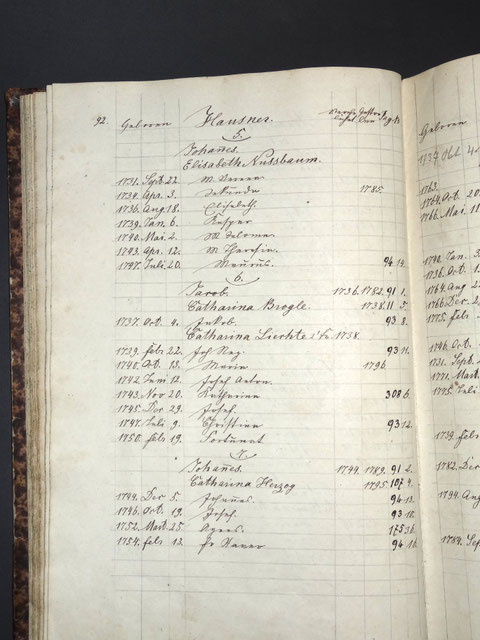 92. Geboren Hausner.
5.
Johanes.
Elisabeth Nussbaum.
1731. Sept. 22. M. Verena
1734. Apr. 3. Sekunda 1785.
1736. Aug. 18. Elisabeth.
1739. Jan. 6. Casper
1740. Mai. 2. M. Salome.
1743. Apr. 12. M. Theresia.
1747. Juli. 20. Maurus. 94 14.
6.
Jacob. 1736. 1782. 91 1.
Catharina Brogle. 1738. 11 5.
1737. Oct. 4. Jakob. 93 8.
Catharina Liechte 1738.
1739. Feb. 22. Joh 93 11.
1740. Oct. 13. Maria 1796.
1742 Juni 12. Josef Anton.
1743. Nov 20. Katharina 308 6.
1745. Dez 29. Josef.
1747. Juli 9. Christian 93 12.
1750. Feb 19. Fortunat
7.
Johanes. 1744. 1789. 91 2.
Catharina Herzog 1795 107 4.
1744. Dez 5. Johannes. 94 13.
1746. Oct. 19. Josef. 93 10.
1752. Mart. 25. Agnes. 175 36.
1754. Feb 13. Fr Xaver 94 16.
Geboren
1737 Okt 4
1763.
1764. Oct. 20
1766. Mai. 11
1740. Jan. 3.
1736. Oct. 1.
1764. Aug. 2
1766. Dez. 2
1775. Feb
1746. Oct.
1731. Sept.
1771. Mart
1775.
1739. Feb
1782. Dez
1794. Aug
1789. Sep